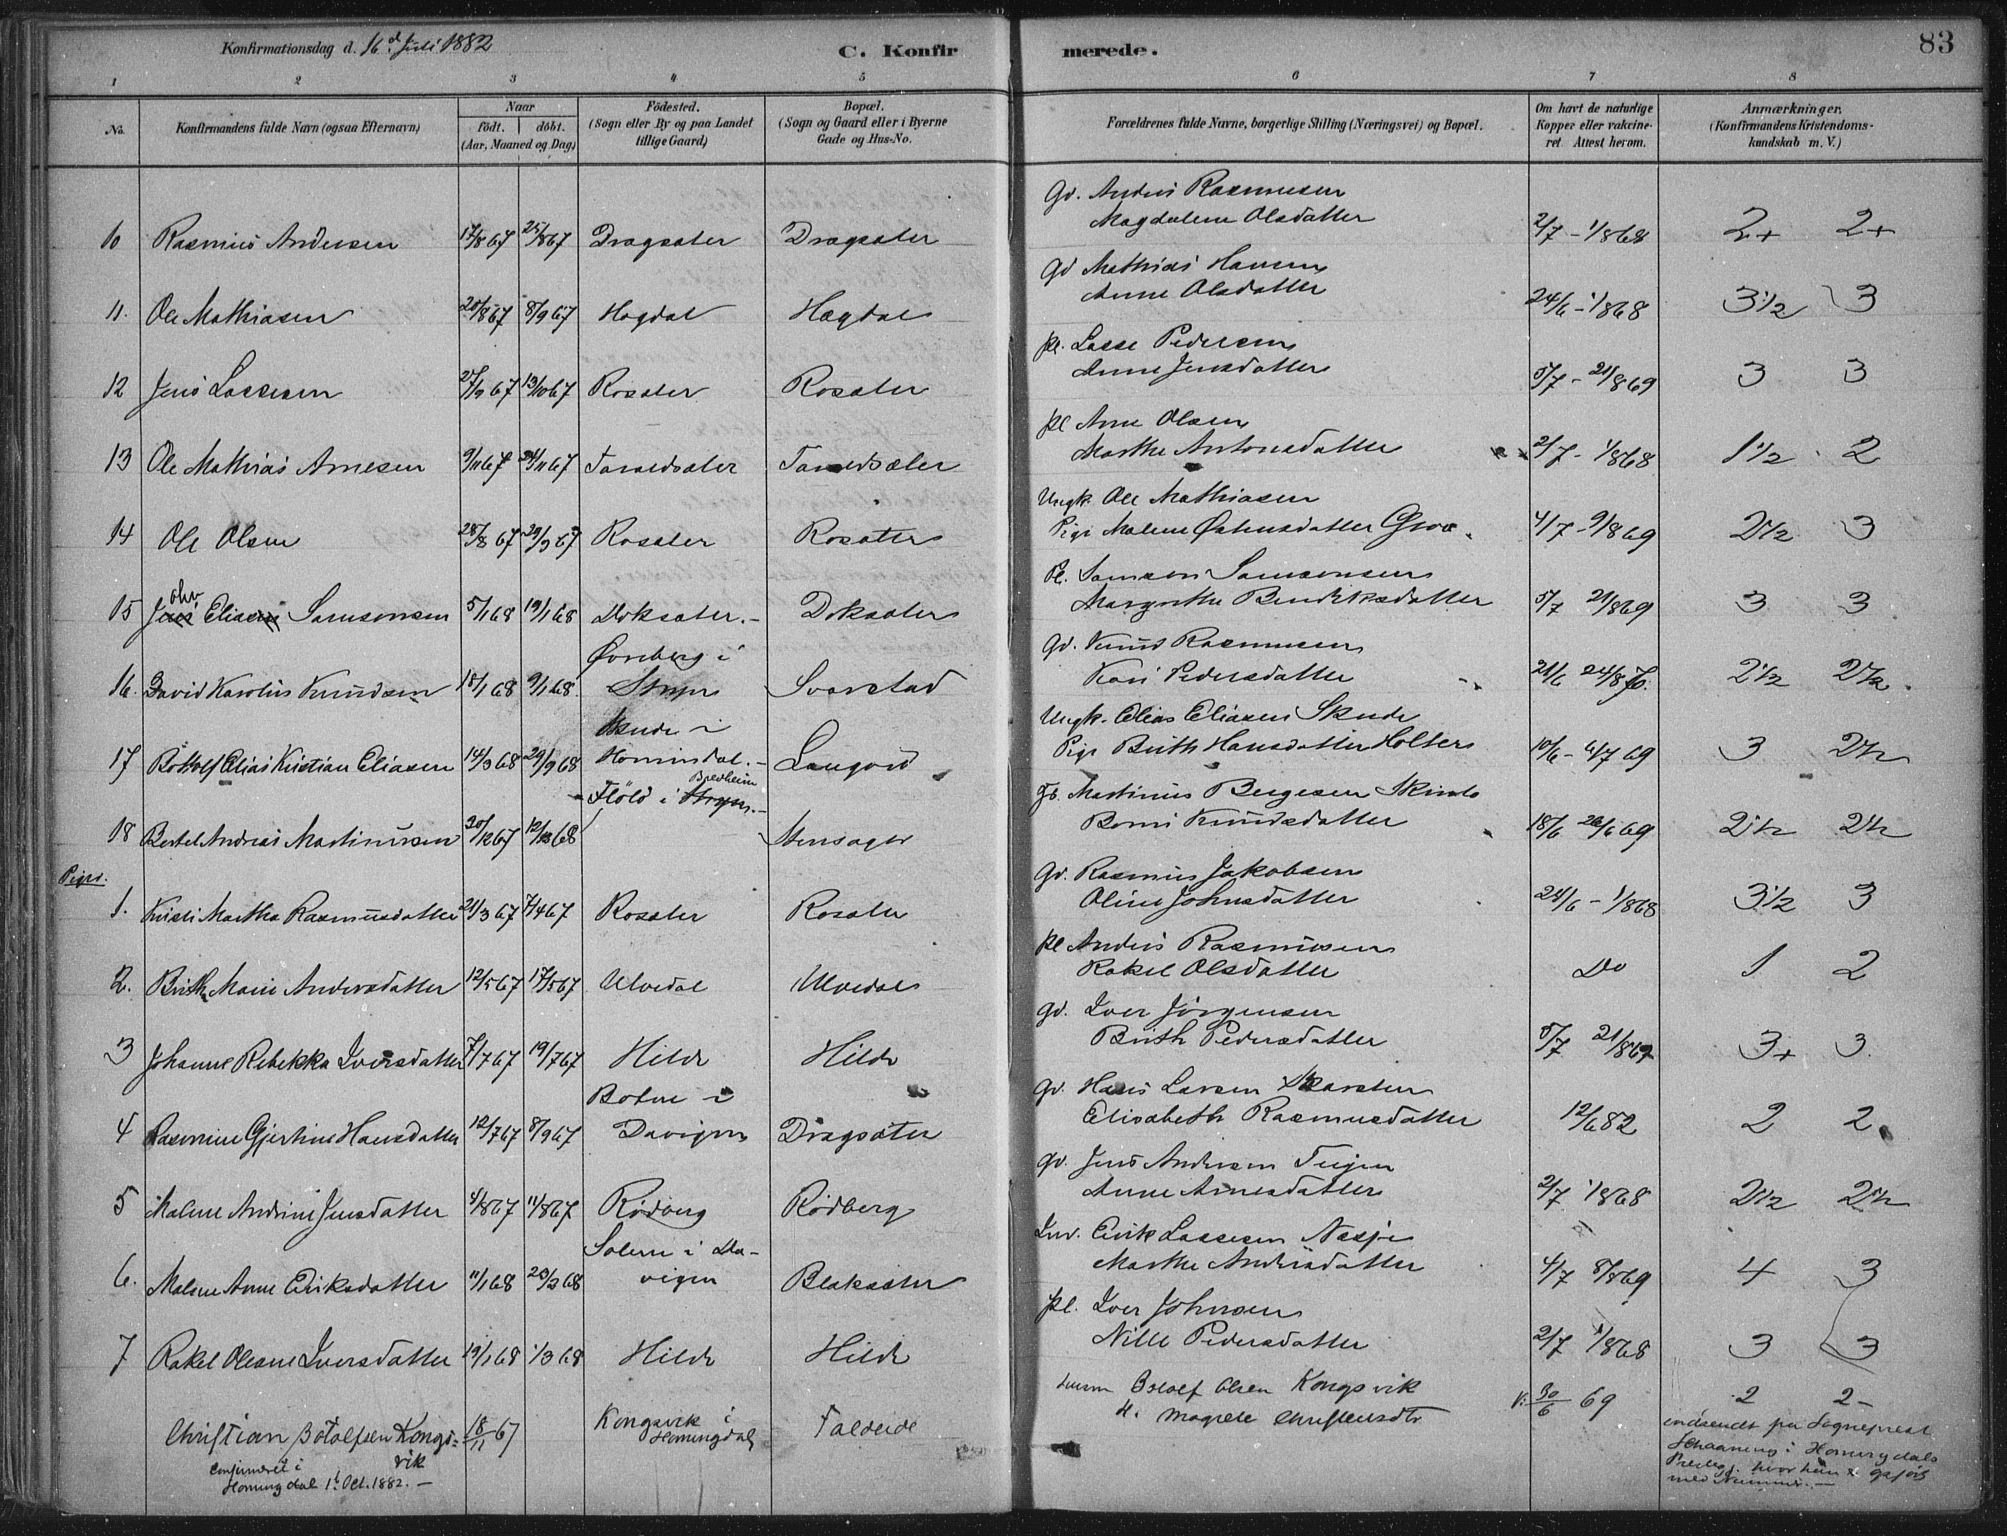 Konfirmationsdag d. 16d Juli 1882
C. Konfir
merede.
83
1 2 3 4 5 6 7 8
No.
Konfirmandens fulde Navn (ogsaa Efternavn)
Naar
födt. döbt.
(Aar, Maaned og Dag)
Födested.
(Sogn eller By og paa Landet
tillige Gaard)
Bopæl.
(Sogn og Gaard eller i Byerne
Gade og Hus-No.
Forældrenes fulde Navne, borgerlige Stilling (Næringsvei) og Bopæl.
Om havt de naturlige
Kopper eller vakcine-
ret. Attest herom.
Anmærkninger.
(Konfirmandens Kristendoms-
kundskab m. V.)
Gd. Anders Rasmussen
Magdalene Olsdatter
10 Rasmus Andersen 17/8 67 25/8 67 Dragsæter Dragsæter 2/7 - 1/8 68 2+ 2+
Gd Mathias Hansen
Anne Olsdatter
11. Ole Mathiasen 20/8 67 8/9 67 Hagdal Hægdal 24/6 - 1/8 68 3 1/2 3
pl. Lasse Pedersen
Anne Jensdatter
12 Jens Lassesen 13/10 67 Rosæter Rosæter 5/7 - 21/8 69 3 3
pl Arne Olsen
Marthe Antonsdatter
13 Ole Mathias Arnesen 9/11 67 24/11 67 2/7 - 1/8 68 1 1/2 2
Ungk. Ole Mathiasen
Pige Malene Østensdatter Grov
14 Ole Olsen 28/8 67 29/9 67 Rosæter Rosæter 4/7 - 9/8 69 2 1/2 3
Pl. Samson Samsonsen
Margrethe Bendiksdatter
15 Eliasen Samsonsen 5/1 68 19/1 68 Doksæter Doksæter 5/7 21/8 69 3 3
Gd. Knud Rasmussen
Kari Pedersdatter
Øvreberg i
16. David Karolius Knudsen 9/1 68 Stryn Svarstad 2 1/2 2 1/2
Ungk. Elias Eliasen Skude
Pige Brith Hansdatter Holter
Skude i
17 Botolf Elias Kristian Eliasen 14/3 68 29/3 68 Hornindal. Langvid 10/6 - 6/7 69 3 2 1/2
Bredheim
Flölo i Stryn.
Martinus Bergesen Skinlo
Berni Knudsdatter
18 Bertel Andreas Martinussen 20/12 67 Stensager 18/6 26/6 69 2 1/2 2 1/2
Piger.
Gd. Rasmus Jakobsen
Oline Johnsdatter
1. Kristi Martha Rasmusdatter 21/3 67 7/4 67 Rosæter Rosæter 24/6 - 1/8 68 3 1/2 3
pl Anders Rasmussen
Rakel Olsdatter
2. Brithe Marie Andersdatter 12/5 67 17/5 67 Ulvedal Ulvedal Do 1 2
Gd. Iver Jörgensen
Brith Pedersdatter
3 Johanne Rebekka Iversdatter 7/7 67 19/7 67 Hilde Hilde 5/7 21/8 69 3+ 3.
Gd. Hans Larsen
Elisabeth Rasmusdatter
Botne i
4 Rasmine Gjertine Hansdatter 12/7 67 8/9 67 Davigen Dragsæter 12/6 82 2 2
Gd. Jens Andersen
Anne Arnesdatter
5 Malene Andrine Jensdatter 4/8 67 11/8 67 Rödberg Rödberg 2/7 1/8 68 2 1/2 2 1/2
Erik Lassesen Nesje
Marthe Andersdatter
Solem i Da-
6. Malene Anne Eriksdatter 11/1 68 vigen Blaksæter 4/7 8/8 69 4 3
pl. Iver Johnsen
Nille Pedersdatter
7 Rakel Oleane Iversdatter 19/1 68 1/3 68 Hilde Hilde 2/7 1/8 68 3 3
Botolf Olsen Kongsvik
H. Magrete Christensdtr
Christian Botolfsen Kongs- 18/11 67 Kongsvik i Faleide v. 30/6 69 2 2-
vik Horningdal
Confirmeret i
Horningdal 1t Oct. 1882. -
indsendt fra Sogneprest
Schaanning i Horningdals
Prestegj. hvor han er opført
med Nummer. -